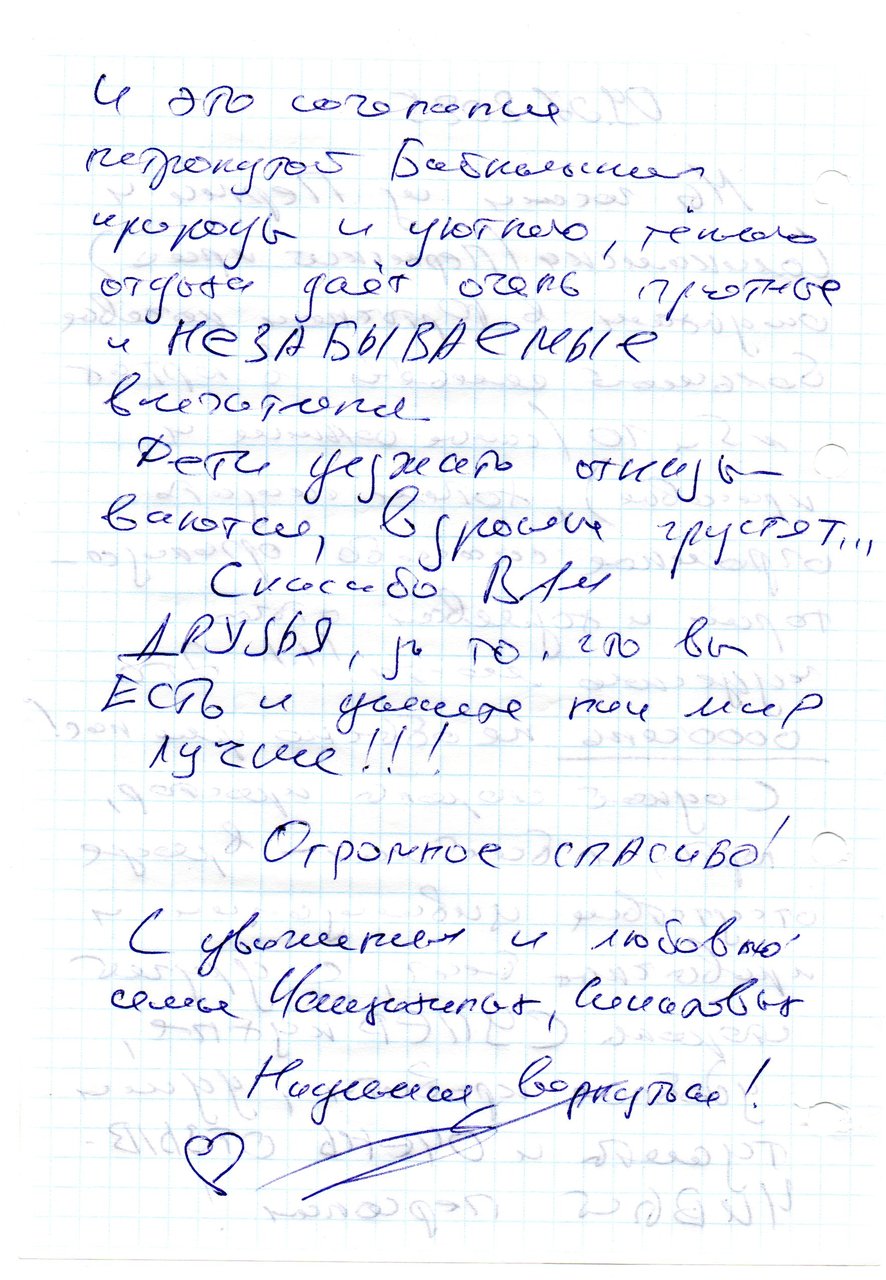 И это сочетание
нетронутой Байкальской
природы и уютного, тёплого
отдыха даёт очень приятные
и НЕЗАБЫВАЕМЫЕ
впечатления
Дети уезжать отказы-
ваются, взрослые грустят...
Спасибо ВАМ
ДРУЗЬЯ, за то, что вы
ЕСТЬ и делаете наш мир
лучше!!!
Огромное спасибо!
С уважением и любовью
семьи
Надеемся вернуться!